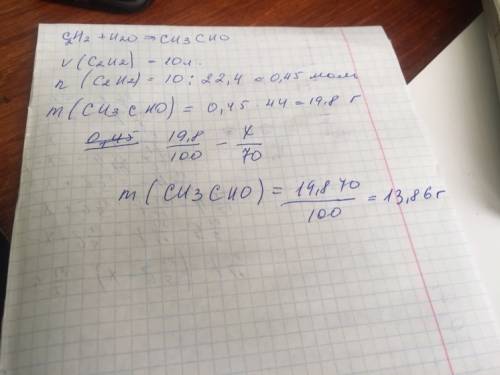 C2H2 + H2O → CH3CHO
V(C2H2) = 10л.
n(C2H2) = 10 : 22,4 = 0,45 моль
m(CH3CHO) = 0,45 · 44 = 19,8 г
0,45 19,8/100 - x/70
m(CH3CHO) = 19,8 70/100 = 13,86 г